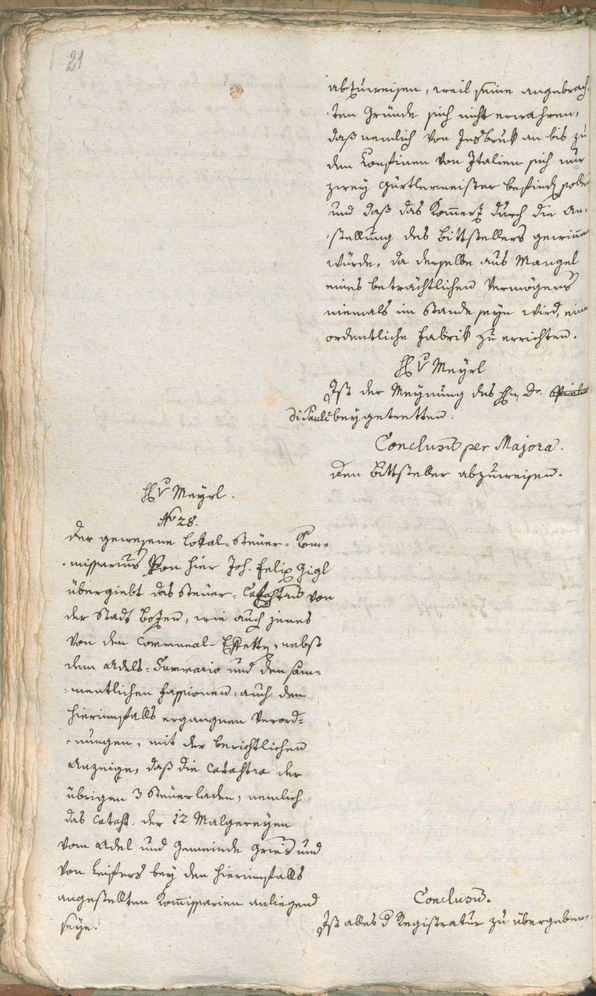 21
abzuweisen, weil seine angebrach-
ten Gründe sich nicht erwahren,
daß nemlich von Insbruk an bis zu
den Konfinen von Italien sich nur
zwey Gürtlermeister befinden sollen
und daß das Komerz durch die An-
stellung des Bittstellers gewinnen
würde, da derselbe aus Mangel
eines beträchtlichen Vermögens
niemals im Stande seyn wird, eine
ordentliche Fabrik zu errichten.
H v Meyrl
Ist der Meynung des H. Dr.
di Pauli beygetretten.
Conclusũ per Majora.
den Bittsteller abzuweisen.
H v Meyrl.
No 28.
Der gewesene Lokal-Steuer-Kom-
missarius von hier Joh. Felix Gigl
übergiebt das Steuer-Catastrũ von
der Stadt Bozen, wie auch jenes
von den Communal-Effetten, nebst
dem Adels-Summario und den säm-
mentlichen Fassionen, auch den
hierinfalls ergangnen Verord-
nungen, mit der berichtlichen
Anzeige, daß die Catastra der
übrigen 3 Steuerladen, nemlich
das Catast. der 12 Malgereyen
vom Adel und Gemeinde Gries und
von Leifers bey den hierinfalls
angestellten Kommissarien anliegend
seye.
Conclusũ.
Ist alles d Registratur zu übergeben.